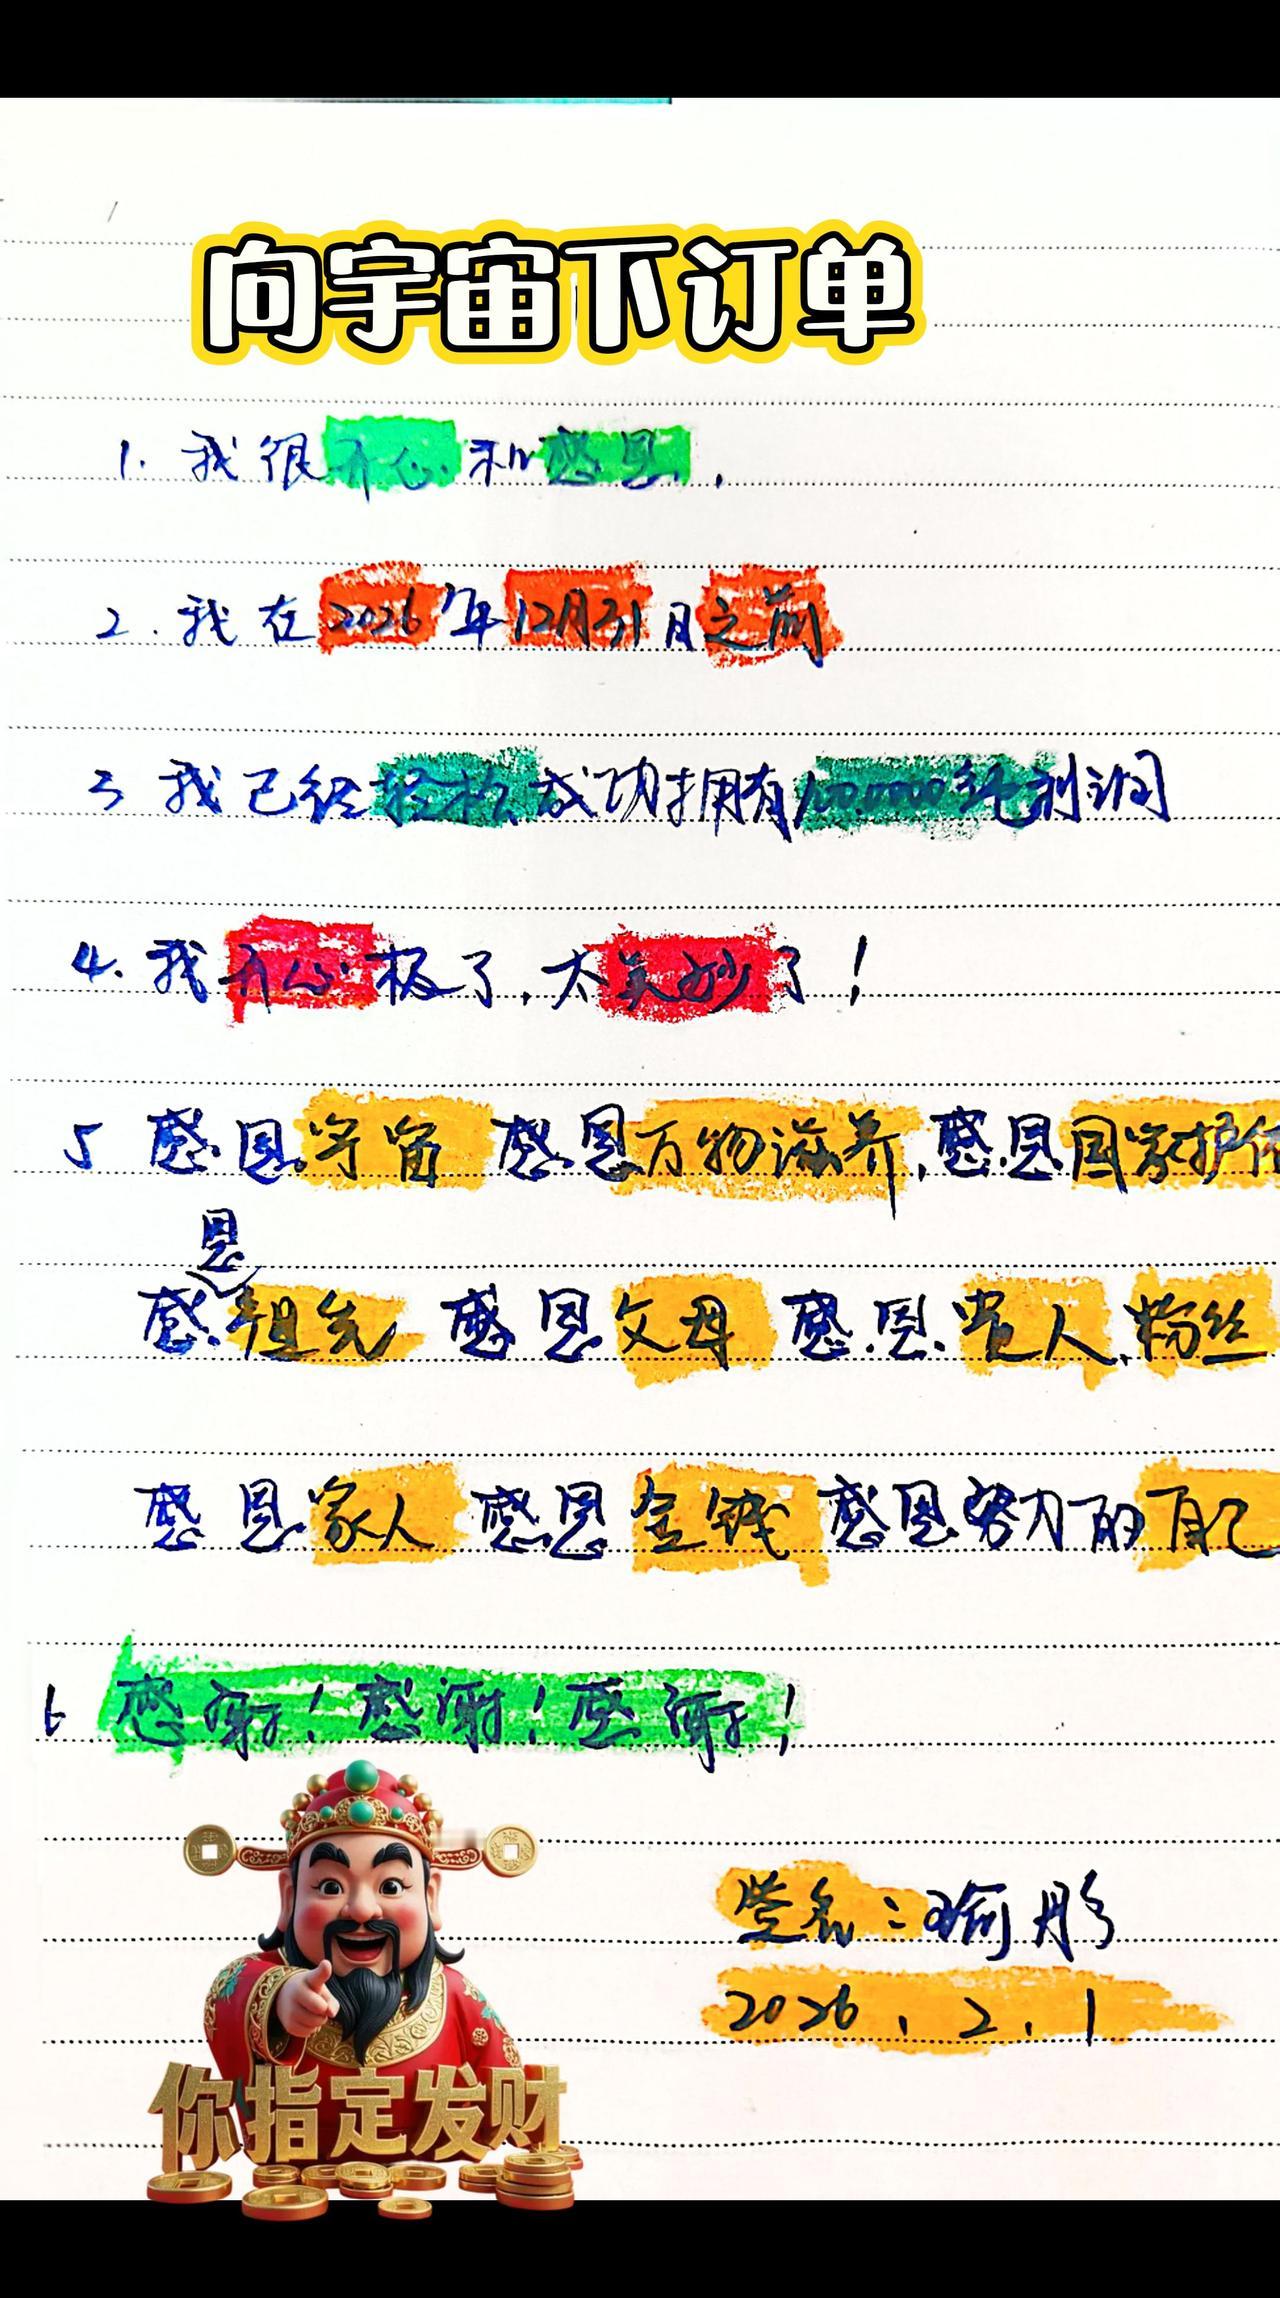 向宇宙下订单
1. 我很开心和感恩.
2. 我在2026年12月31日之前
3 我已经轻松成功拥有100.0000纯利润
4. 我开心极了,太美妙了!
5 感恩宇宙 感恩万物滋养,感恩国家护佑
感恩祖先 感恩父母 感恩贵人、粉丝
感恩家人 感恩金钱 感恩努力的自己
6 感谢!感谢!感谢!
签名:瑜彤
2026.2.1
你指定发财